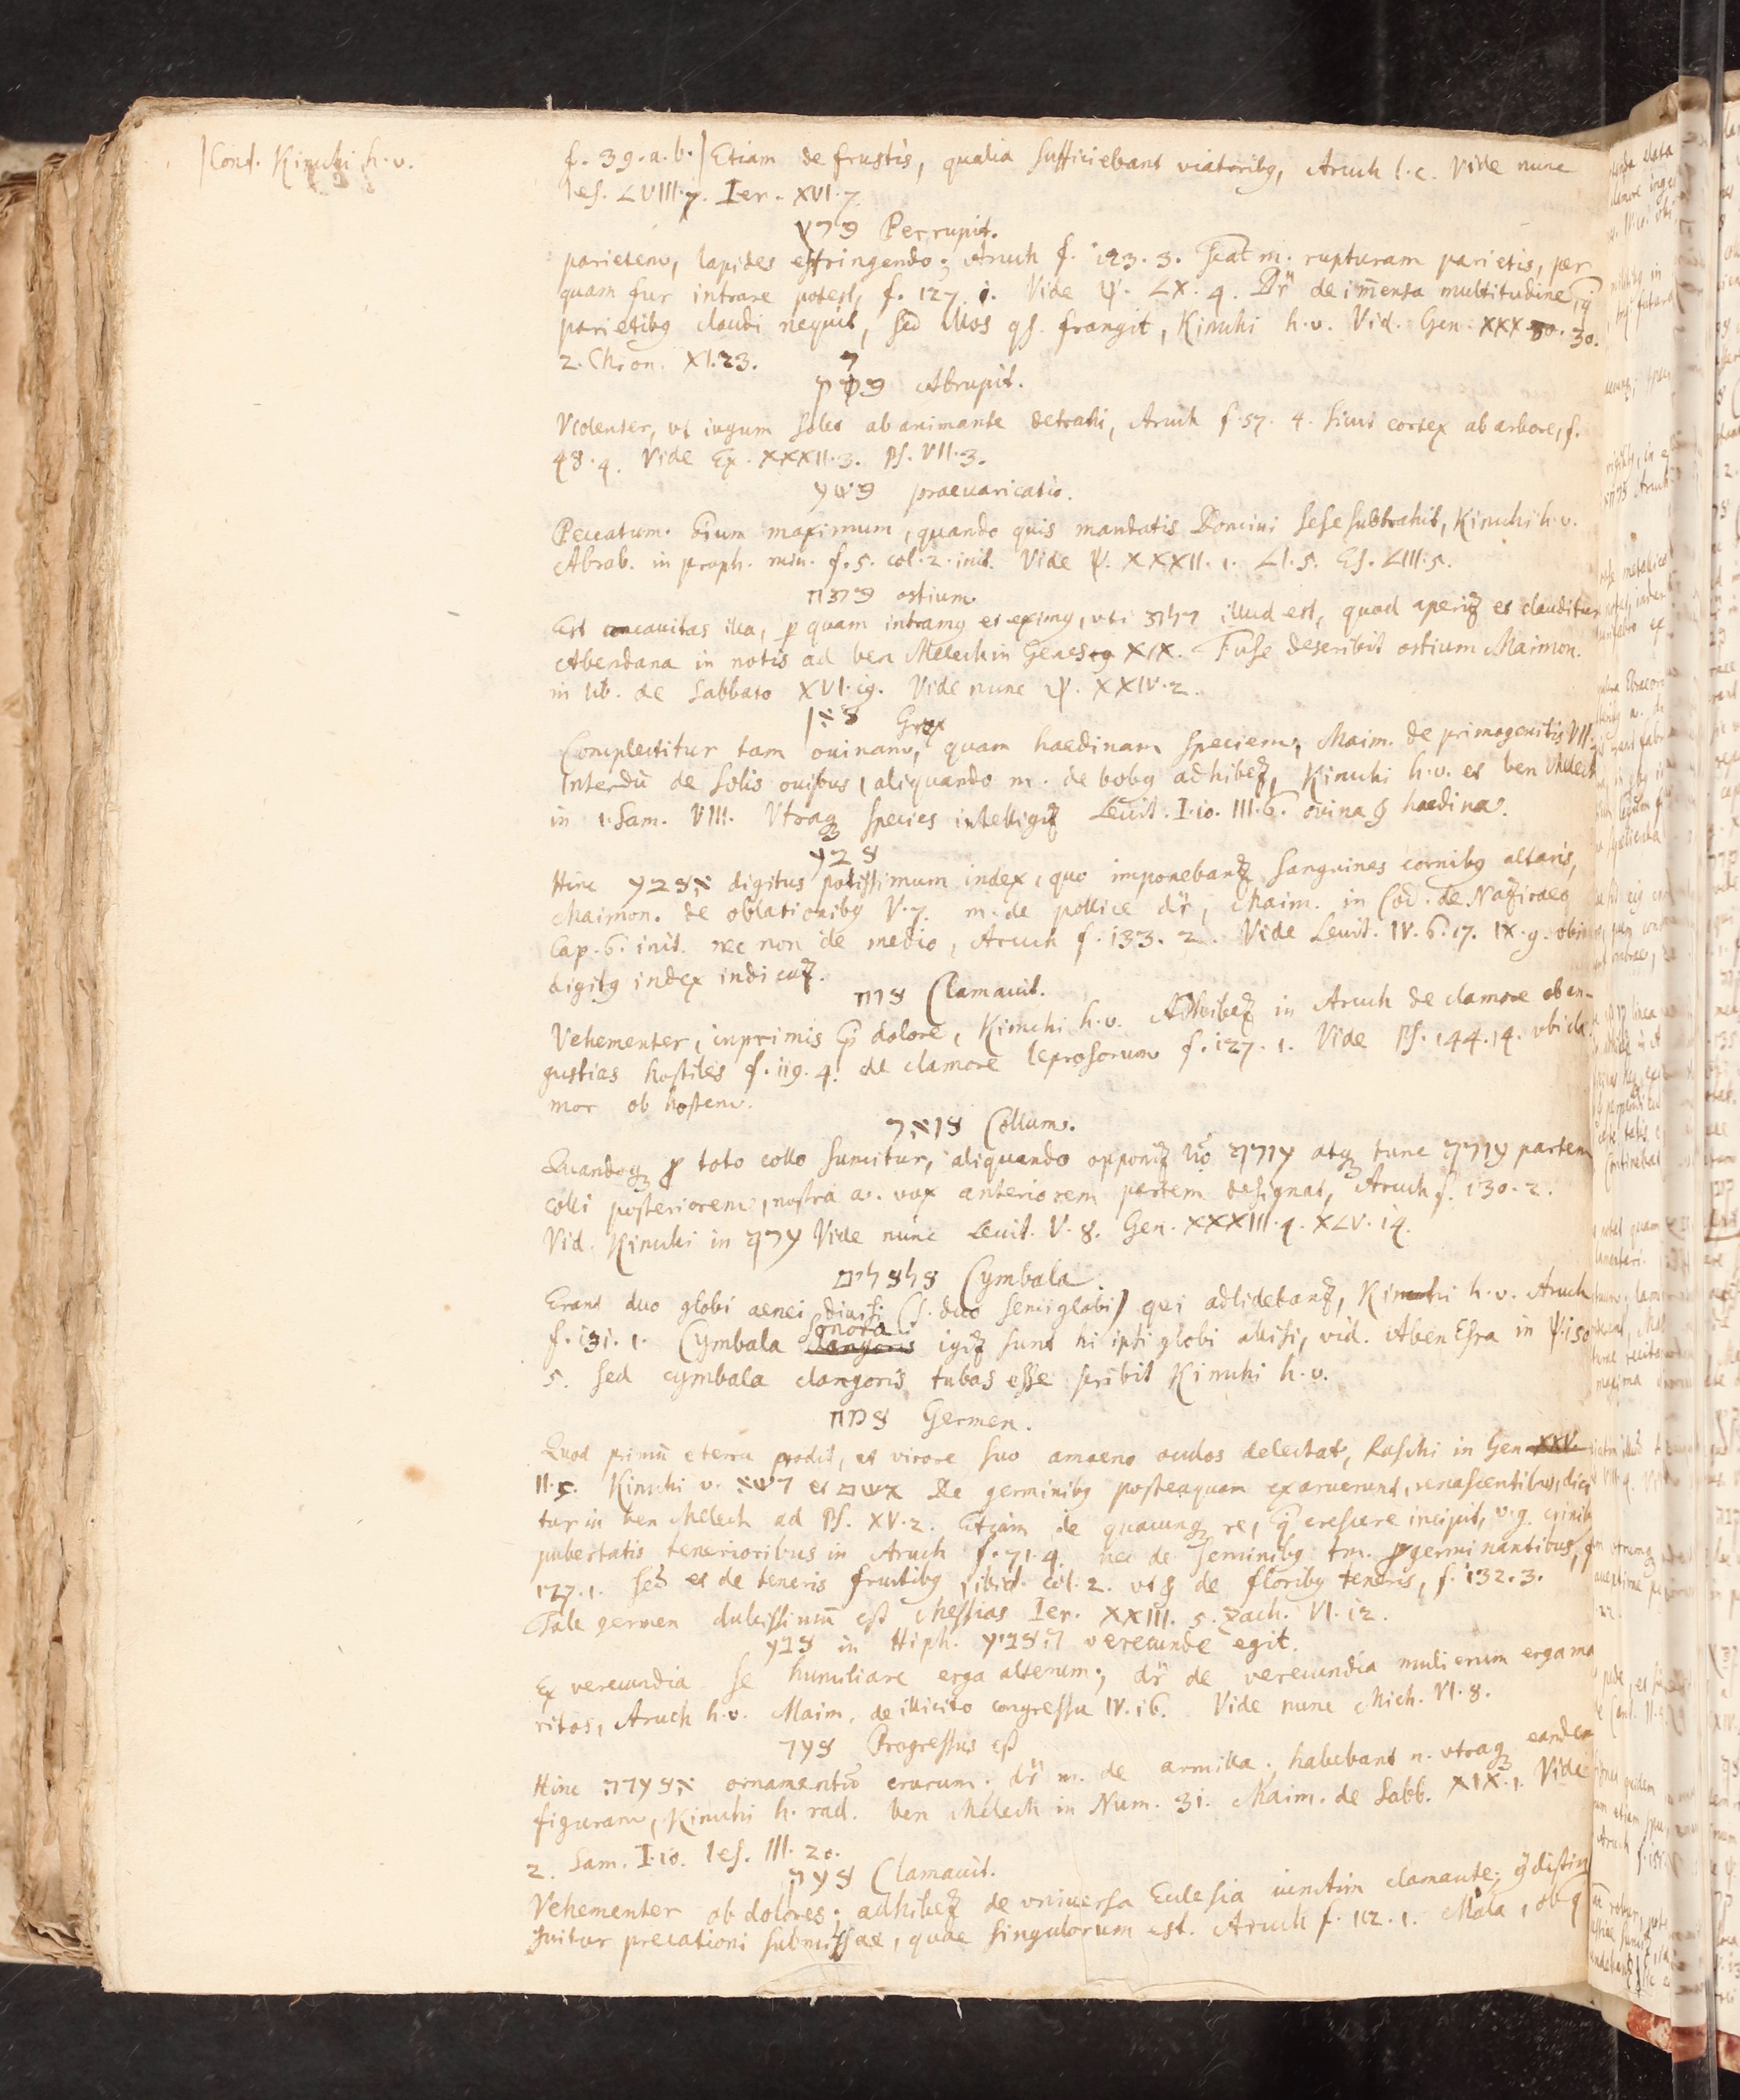 |Conf. Kimchi h. v.
f. 39. a. b.| Etiam de frustis, qualia sufficiebant viatoribꝰ, Aruch l. c. Vide nunc
Ies. LVIII. 7. Ier. XVI. 7.
פרץ Perrupit.
parietem, lapides effringendo; Aruch f. 123. 3. Scat m. rupturam parietis, per
quam fur intrare potest, f. 127. 1. Vide ψ. LX. 4. Dr̃ de im̃ensa multitudine, q̃
parietibꝰ claudi nequit, sed illos qs. frangit, Kimchi h. v. Vid. Gen. XXX. 30.
2. Chron. XI. 23.
פרק Abrupit.
Violenter, vt iugum solet ab animante detrahi, Aruch f. 57. 4. sicut cortex ab arbore, f.
48. 4. Vide Ex. XXXII. 3. Ps. VII. 3.
פשע praevaricatio.
Peccatum om̃ium maximum, quando quis mandatis Domini sese subtrahit, Kimchi h. v.
Abrab. in proph. min. f. 5. col. 2. init. Vide ψ. XXXII. 1. LI. 5. Es. LIII. 5.
פתח ostium.
Est concavitas illa, ꝑ quam intramꝰ et eximꝰ, vti דלת illud est, quod aperitꝛ et clauditur
Abendana in notis ad ben Melech in Genes XIX. Fuse describit ostium Maimon.
in lib. de Sabbato XVI. 19. Vide nunc ψ. XXIV. 2.
צאן Grex
Complectitur tam ouinam, quam haedinam speciem, Maim. de primogenitis VII.
Interdũ de solis ouibus, aliquando m. de bobꝰ adhibetꝛ, Kimchi h. v. et ben Melech
in 1. Sam. VIII. Vtraqꝫ species intelligitꝛ Leuit. I. 10. III. 6. ouina & haedina.
צבע
Hinc אצבע digitus potissimum index, quo imponebantꝛ sanguines cornibꝰ altaris,
Maimon. de oblationibꝰ V. 7. m. de pollice dr̃, Maim. in Cod. de Naziraeo
Cap. 6. init. nec non de medio, Aruch f. 133. 2. Vide Leuit. IV. 6. 17. IX. 9. vbi
digitꝰ index indicatꝛ.
צוח Clamauit.
Vehementer, inprimis prae dolore, Kimchi h. v. Adhibetꝛ in Aruch de clamore ob an-
gustias hostiles f. 119. 4. de clamore leprosorum f. 127. 1. Vide Ps. 144. 14. vbi cla-
mor ob hostem.
צואר Collum.
Quandoqꝫ ꝓ toto collo sumitur, aliquando opponitꝛ ṽo עורף atqꝫ tunc עורף partem
colli posteriorem, nostra a. vox anteriorem partem designat, Aruch f. 130. 2.
Vid. Kimchi in ערף Vide nunc Leuit. V. 8. Gen. XXXIII. 4. XLV. 14.
צלצלים Cymbala.
Erant duo globi aenei diuisi (s. duo semiglobi) qui adlidebantꝛ, Kimchi h. v. Aruch
f. 131. 1. Cymbala sonora igitꝛ sunt hi ipsi globi allisi, vid. Aben Esra in ψ. 150
5. sed cymbala clangoris tubas esse scribit Kimchi h. v.
צמח Germen.
Quod primũ e terra prodit, et virore suo amaeno oculos delectat, Raschi in Gen XXV.
II. 5. Kimchi v. דשא et עשב De germinibꝰ posteaquam exaruerunt, renascentibus, dici
tur in ben Melech ad Ps. XV. 2. Etiam de quacunqꝫ re, q̃ crescere incipit, v. g. crinibꝰ
pubertatis tenerioribus in Aruch f. 71. 4. nec de seminibꝰ tm. ꝓgerminantibus, f.
127. 1. sed et de teneris fructibꝰ, ibid. col. 2. vt & de floribꝰ teneris, f. 132. 3.
Tale germen dulcissimũ est Messias Ier. XXIII. 5. Zach. VI. 12.
צנע in Hiph. הצניע verecunde egit.
Ex verecundia se humiliare erga alterum; dr̃ de verecundia mulierum erga ma
ritos, Aruch h. v. Maim. de illicito congressu IV. 16. Vide nunc Mich. VI. 8.
צעד Progressus est
Hinc אצעדה ornamentũ crurum. dr̃ m. de armilla; habebant n. vtraqꝫ eandem
figuram, Kimchi h. rad. ben Melech in Num. 31. Maim. de Sabb. XIX. 1. Vide
2. Sam. I. 10. Ies. III. 20.
צעק Clamauit.
Vehementer ob dolores; adhibetꝛ de vniuersa Ecclesia iunctim clamante; q̃ distin
guitur precationi submissae, quae singulorum est. Aruch f. 112. 1. Mala, ob q